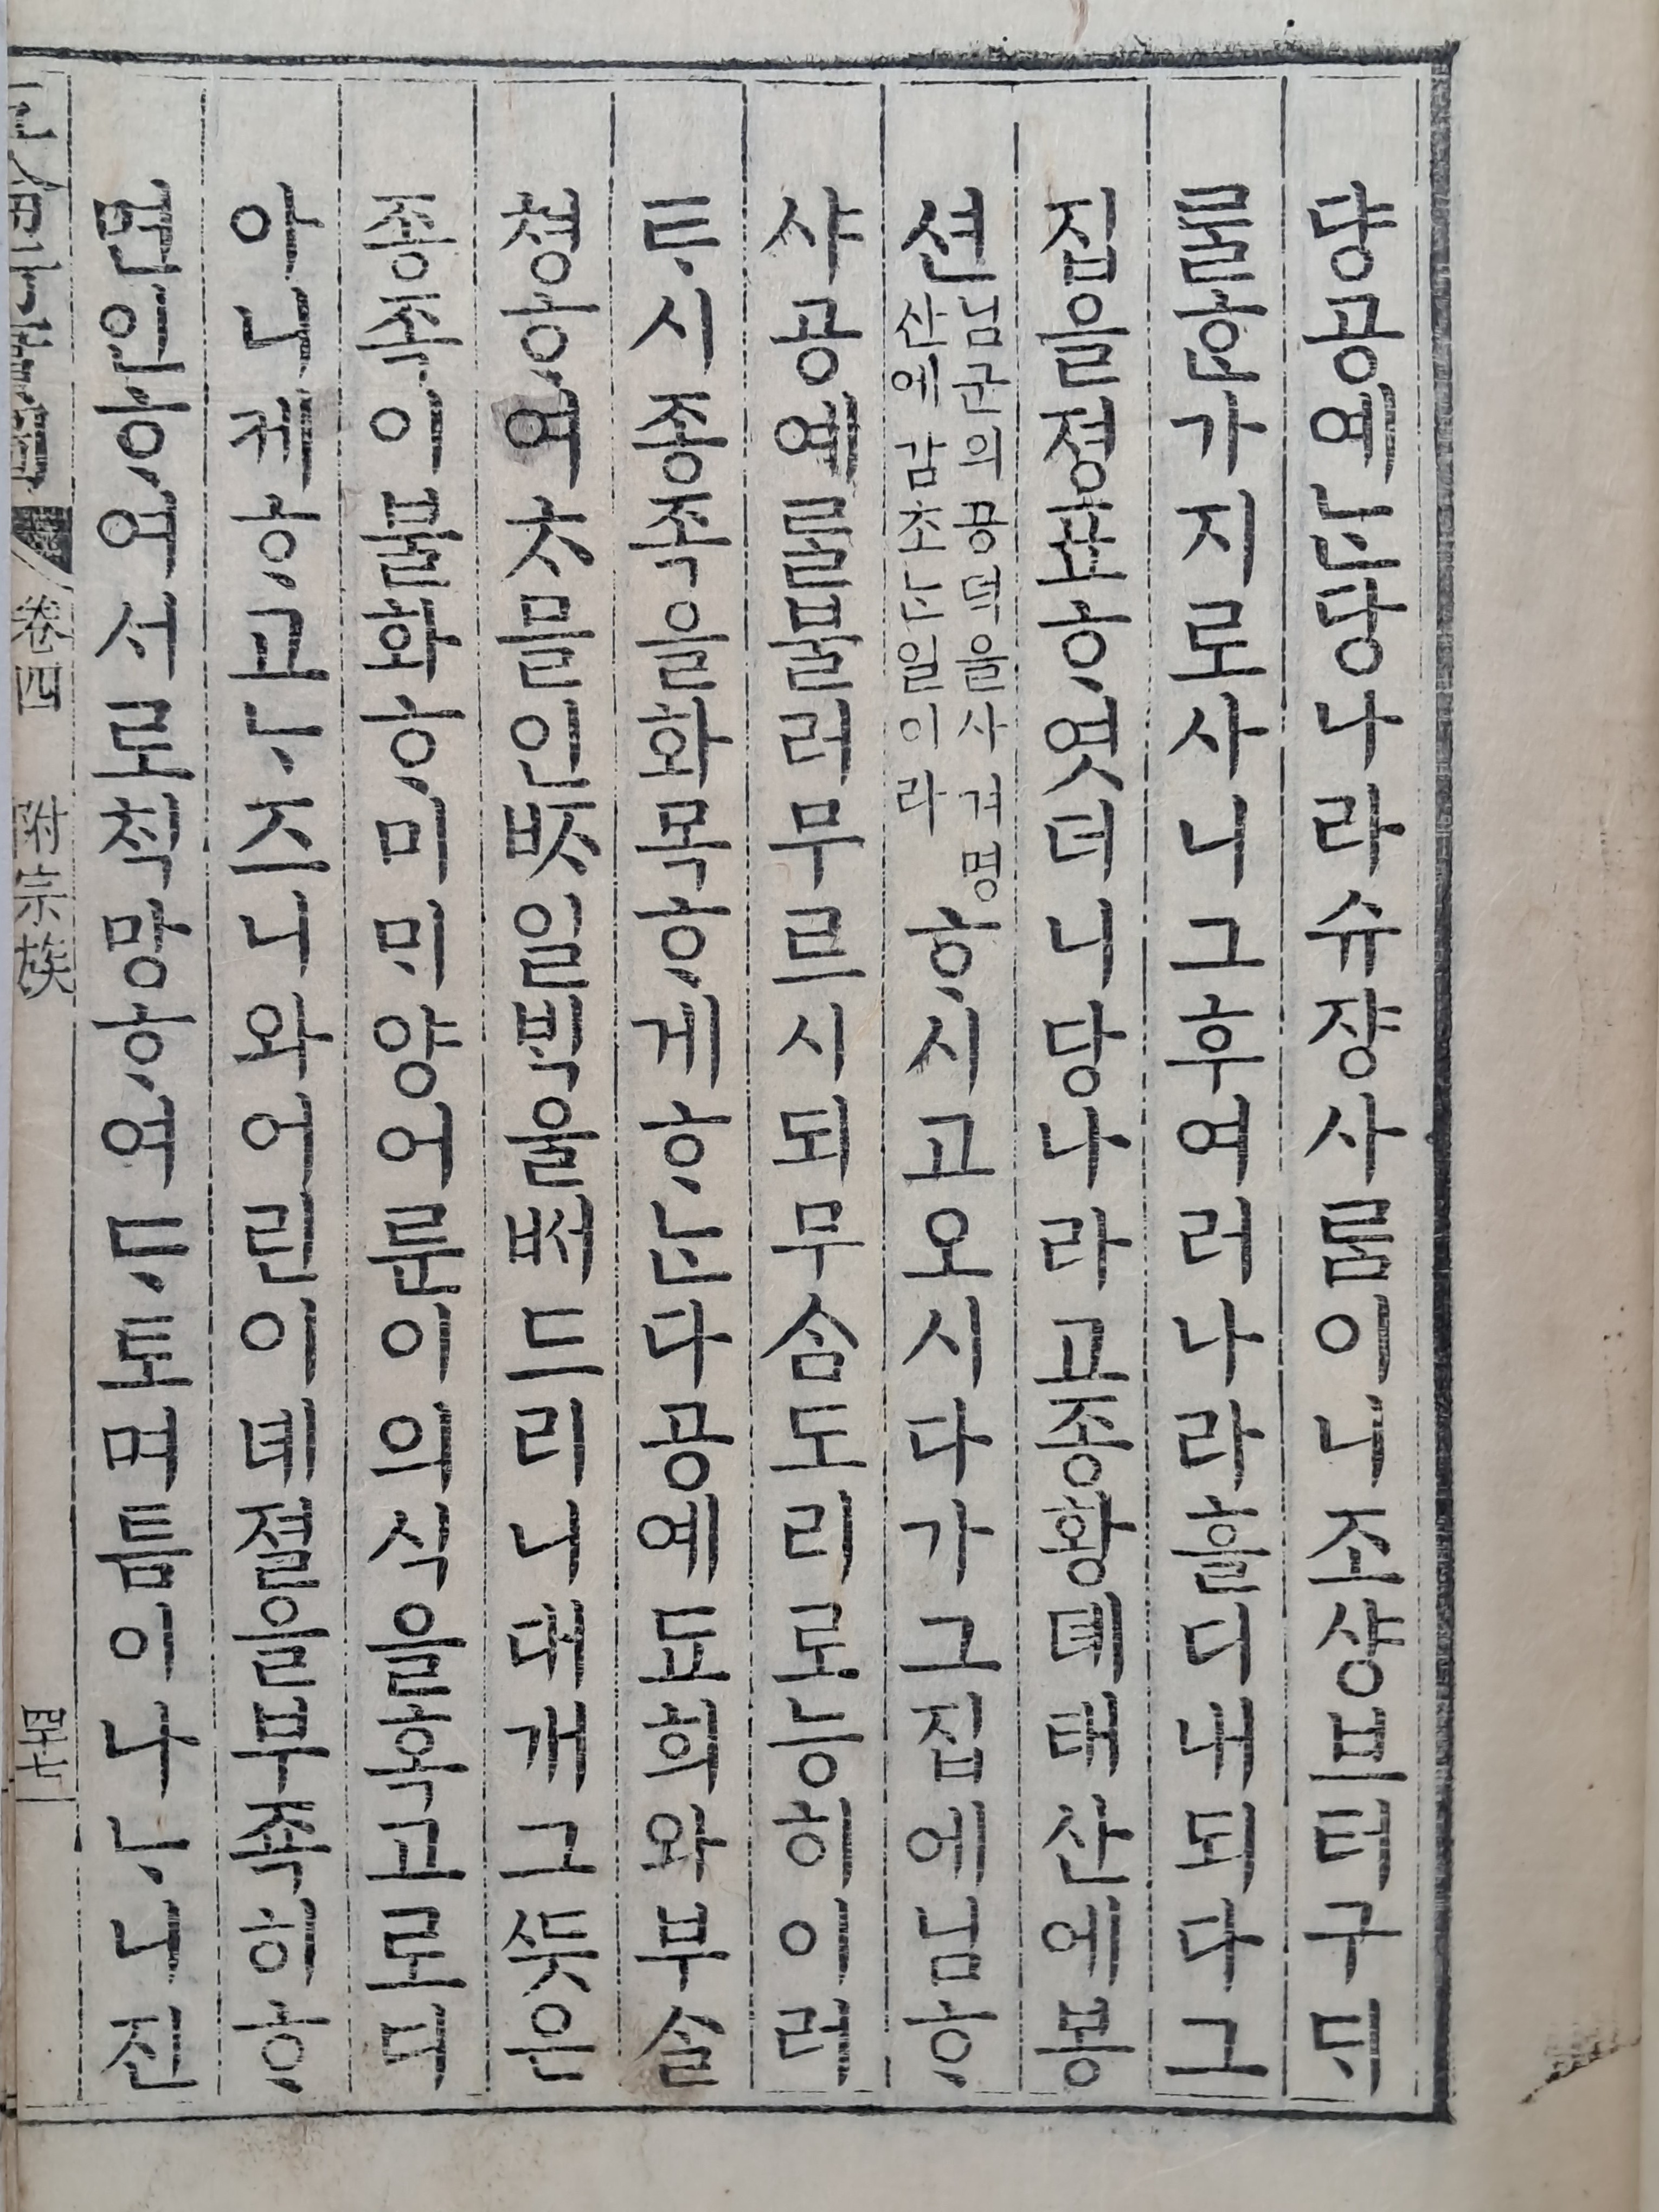 댱공예ᄂᆞᆫ당나라슈쟝사ᄅᆞᆷ이니조샹브터구ᄃᆡ
ᄅᆞᆯᄒᆞᆫ가지로사니그후여러나라흘디내되다그
집을졍표ᄒᆞ엿더니당나라고종황뎨태산에봉
션
님군의공덕을사겨명
산에감초ᄂᆞᆫ일이라
ᄒᆞ시고오시다가그집에님ᄒᆞ
샤공예ᄅᆞᆯ블러무르시되무ᄉᆞᆷ도리로능히이러
ᄐᆞ시종족을화목ᄒᆞ게ᄒᆞᄂᆞᆫ다공예됴희와부ᄉᆞᆯ
쳥ᄒᆞ여ᄎᆞᄆᆞᆯ인ᄍᆞ일ᄇᆡᆨ을뻐드리니대개그ᄯᅳᆺ은
종족이블화ᄒᆞ미ᄆᆡ양어룬의의식을학고로디
아니케ᄒᆞ고ᄂᆞ즈니와어린이녜졀을부죡히ᄒᆞ
면인ᄒᆞ여서로ᄎᆡᆨ망ᄒᆞ여ᄃᆞ토며틈이나ᄂᆞ니진
卷四
附宗族
四十七